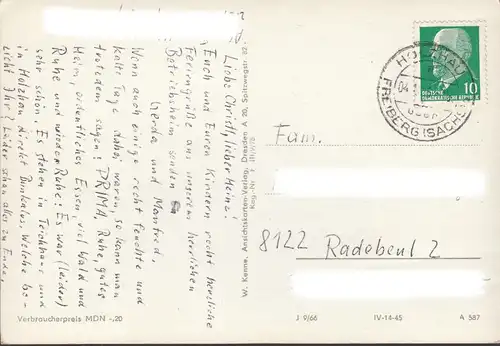 Liebe Christl, lieber Heinz!
Euch und Euren Kindern recht herzliche
Feriengrüße aus unserem herrlichen
Betriebsheim senden
Gerda und Manfred.
Wenn auch einige recht feuchte und
kalte Tage dabei waren, so kann man
trotzdem sagen: PRIMA, Ruhe, gutes
Heim, ordentliches Essen, viel Wald und
Ruhe und wieder Ruhe! Es war (leider)
sehr schön. Es stehen in Teichhaus und
in Holzhau direkt Bunkalus, welche be-
zieht Ihr? Leider schon alles zu Ende,
Verbraucherpreis MDN -,20
W. Kenne, Ansichtskarten-Verlag, Dresden A 20, Spitzwegstr. 62
Reg.-Nr.
HOLZHAU
FREIBERG (SACHS)
DEUTSCHE
DEMOKRATISCHE REPUBLIK
10
Fam.
8122 Radebeul 2
J 9/66 IV-14-45 A 587